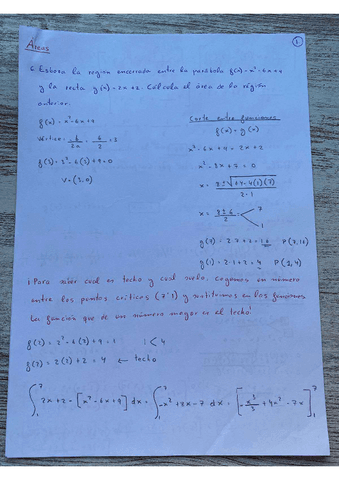 Áreas
1
c. Esboza la región encerrada entre la parábola f(x) = x² - 6x + 9
y la recta g(x) = 2x + 2. Calcula el área de la región
anterior.
f(x) = x² - 6x + 9
Vértice = -b/2a = 6/2 = 3
f(3) = 3² - 6(3) + 9 = 0
V = (3,0)
Corte entre funciones
f(x) = g(x)
x² - 6x + 9 = 2x + 2
x² - 8x + 7 = 0
x = 8 ± √(64 - 4(1)(7)) / 2·1
x = 8 ± 6 / 2
7
1
g(7) = 2·7 + 2 = 16 P(7,16)
g(1) = 2·1 + 2 = 4 P(1,4)
Para saber cual es techo y cual suelo, cogemos un número
entre los puntos críticos (7 y 1) y sustituimos en las funciones
La función que de un número mayor es el techo!
f(2) = 2² - 6(2) + 9 = 1 1 < 4
g(2) = 2(2) + 2 = 4 ← techo
∫₁⁷ 2x + 2 - [x² - 6x + 9] dx = ∫₁⁷ -x² + 8x - 7 dx = [-x³/3 + 4x² - 7x]₁⁷